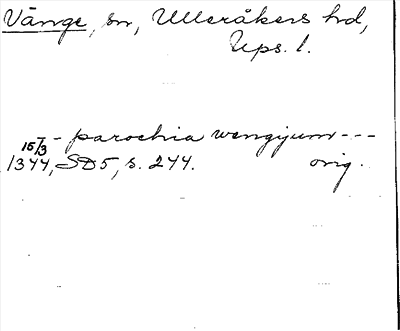 Vänge, sn, Ulleråkers hd,
Ups. l.
- parochia wengijum ---
15/3
1344, SD5, s. 244. orig.